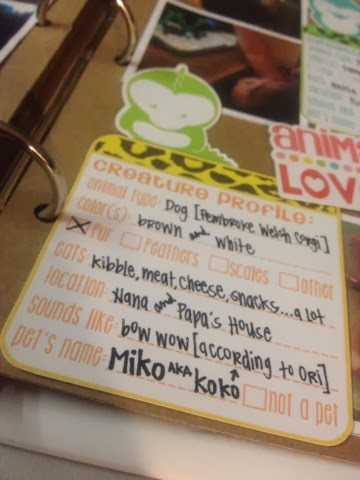 ANIMA
LOV
CREATURE PROFILE:
animal type: Dog [Pembroke Welsh Corgi]
color(s): brown and white
☒ fur ☐ feathers ☐ scales ☐ other
eats: kibble, meat, cheese, snacks...a lot
location: Nana and Papa's House
sounds like: bow wow [according to Ori]
pet's name: Miko AKA Koko ☐ not a pet